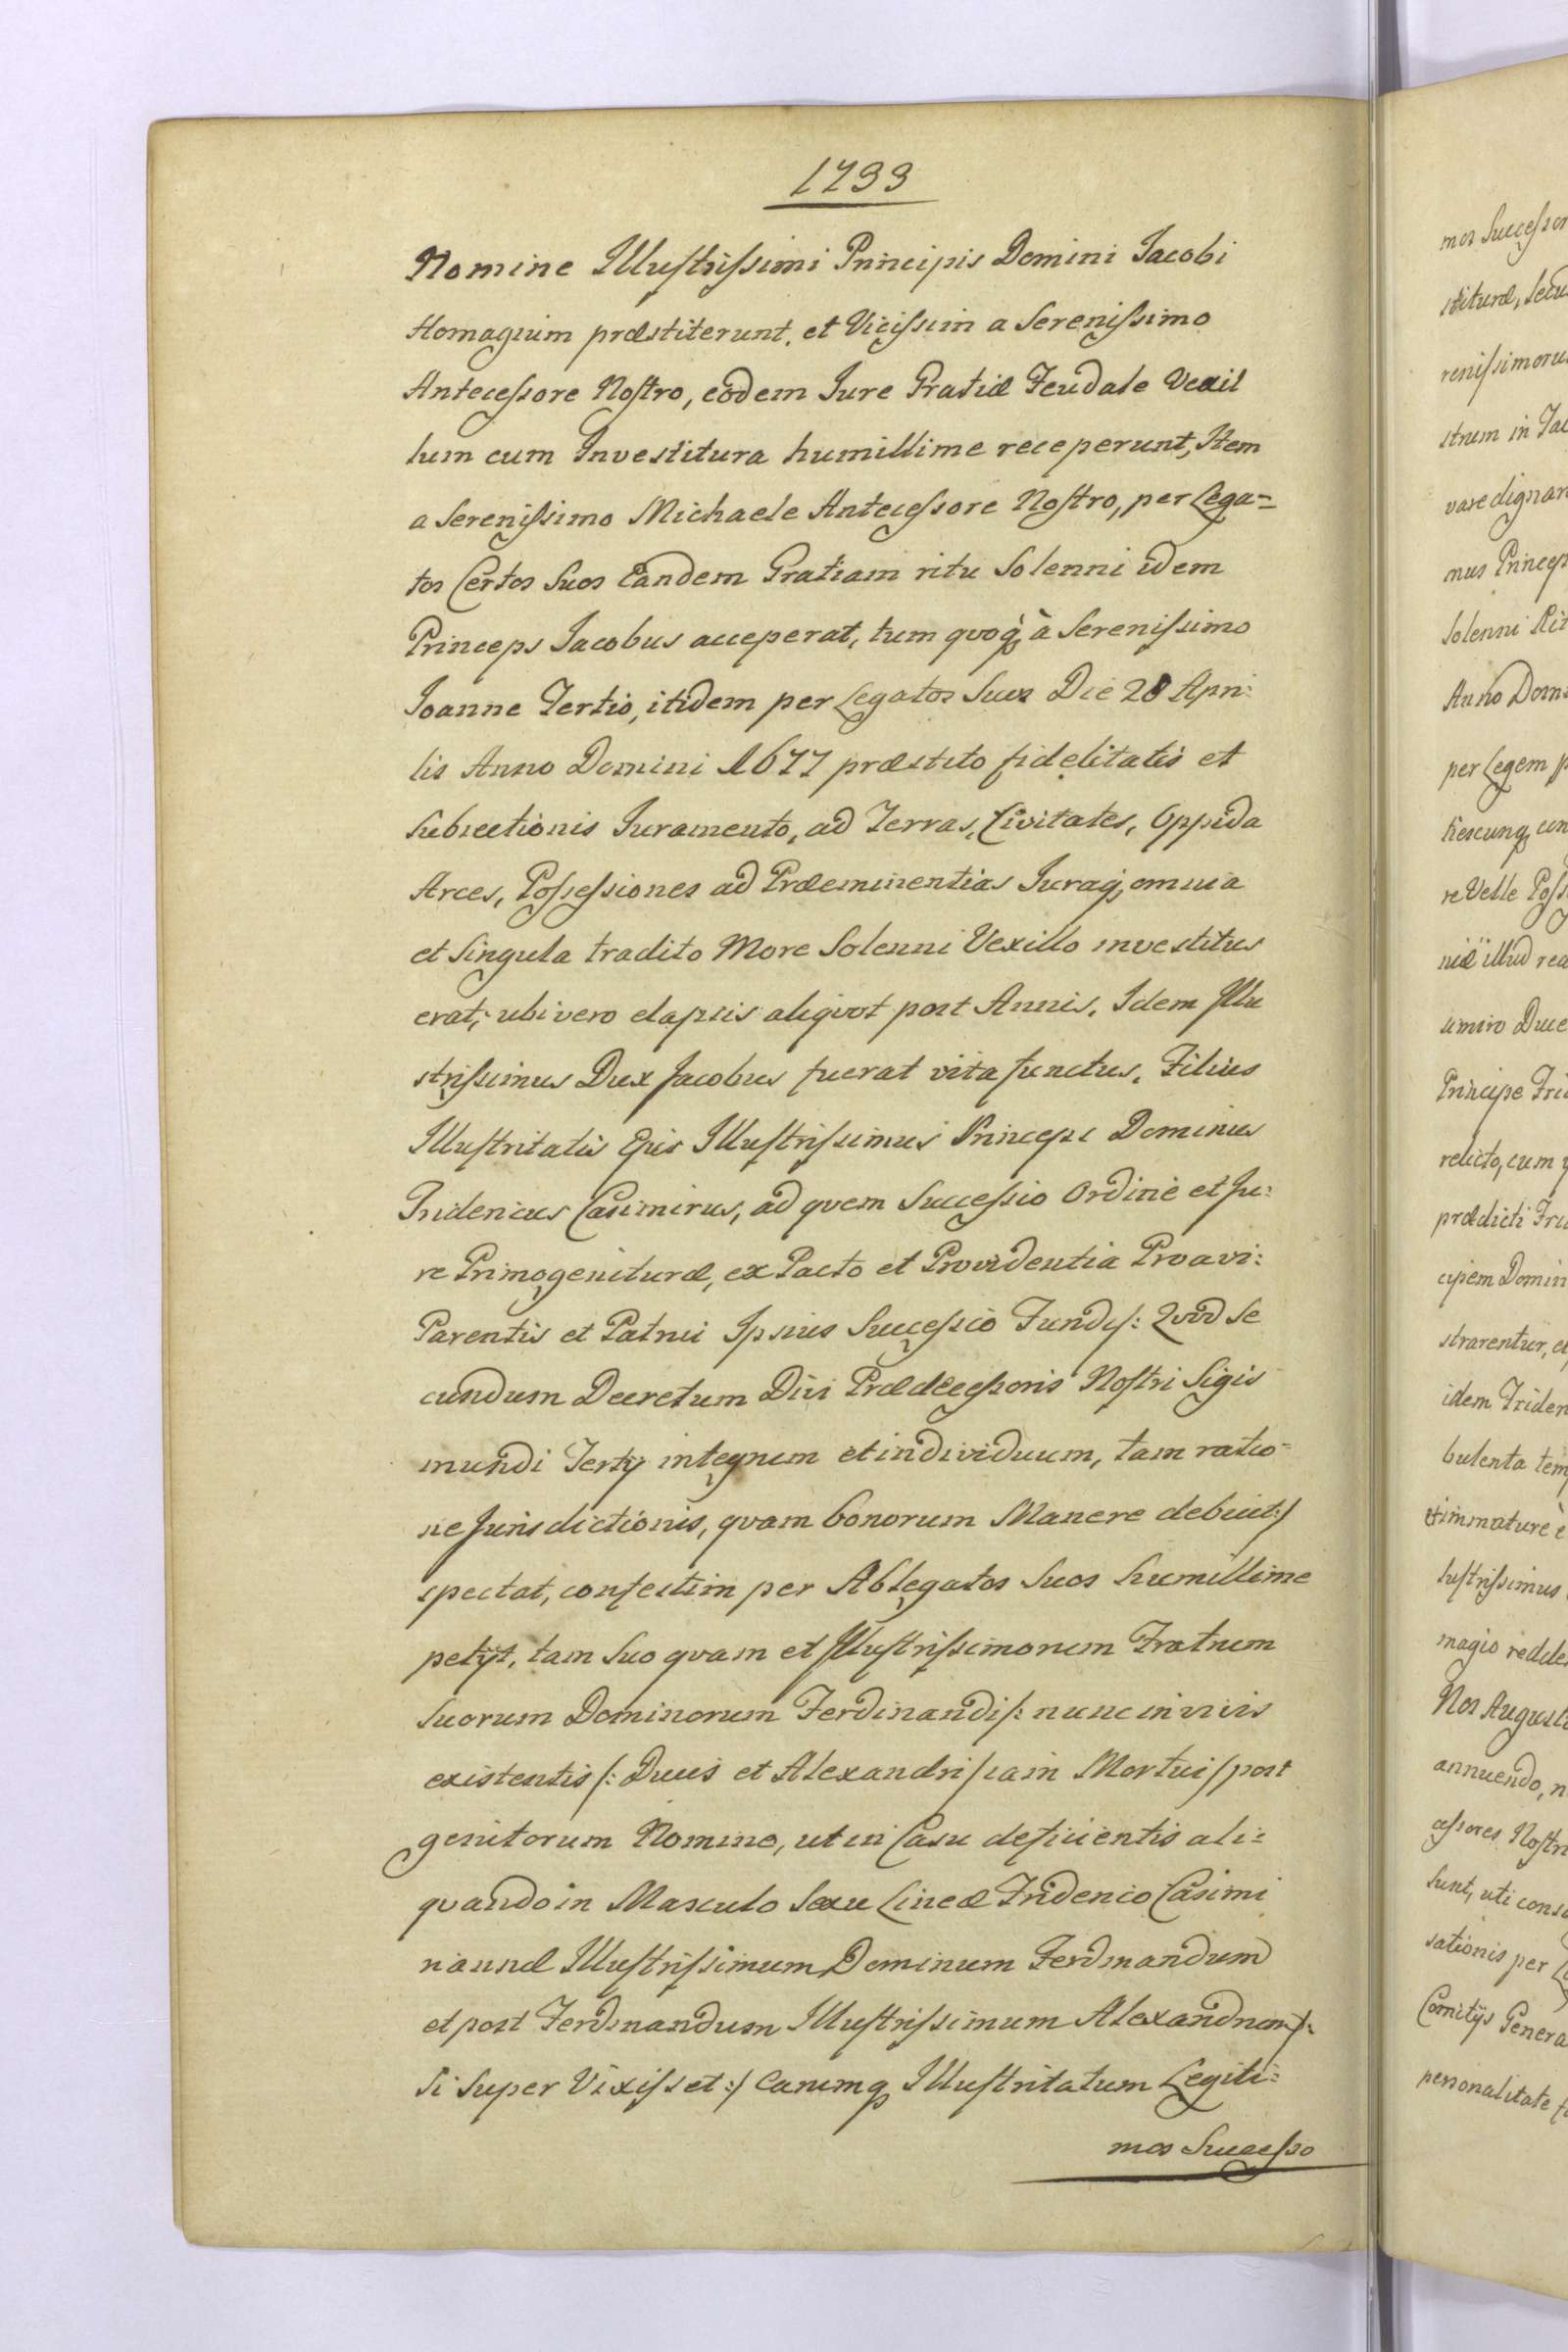 1733
Nomine Illustrissimi Principis Domini Jacobi
Homagium præstiterunt, et Vicissim a Serenissimo
Antecessore Nostro, eodem Jure Gratiæ Feudale Vexil
lum cum Investitura humillime receperunt, Item
a Serenissimo Michaele Antecessore Nostro, per Lega=
tos Certos Suos Eandem Gratiam ritu Solenni idem
Princeps Jacobus acceperat, tum quoq à Serenissimo
Joanne Tertio, itidem per Legatos Suos Die 28 Apri:
lis Anno Domini 1677 præstito fidelitatis et
Subiectionis Juramento, ad Terras, Civitates, Oppida
Arces, Possessiones ad Præeminentias Juraq omnia
et Singula tradito More Solenni Vexillo investitus
erat; ubi vero elapsis aliqvot post Annis, Idem Illu
strissimus Dux Jacobus fuerat vita functus, Filius
Illustritatis Ejus Illustrissimus Princeps Dominus
Fridericus Casimirus, ad qvem Successio Ordine et Ju:
re Primogenituræ, ex Pacto et Providentia Proavi:
Parentis et Patrui Ipsius Successio Fundi /: Qvod Se
cundum Decretum Divi Prædecessoris Nostri Sigis
mundi Tertÿ integrum et individuum, tam ratio=
ne Jurisdictionis, qvam bonorum Manere debuit :/
spectat, confestim per Ablegatos Suos humillime
petÿt, tam Suo qvam et Illustrissimorum Fratrum
Suorum Dominorum Ferdinandi /: nunc in vivis
existentis /: Ducis et Alexandri / iam Mortui / post
genitorum Nomine, ut in Casu deficientis ali=
qvando in Masculo Sexu Lineæ Friderico Casimi
rianæ Illustrissimum Dominum Ferdinandum
et post Ferdinandum Illustrissimum Alexandrum /:
Si Super Vixisset :/ Earumq Illustritatum Legiti=
mos Successo
mos Successor
stituræ, Secu
renissimoru
strum in
vare dignar
mus Princeps
Solenni Rit
Anno Dom
per Legem
re Velle Poss
niæ illud rea
simiro Duce
Principe Fri
relicto, cum
prædicti Fri
cipem Domin
strarentur, et
idem Frider
bulenta tem
et immature è
lustrissimus
magio redde
Nos August
annuendo, n
cessores Nostri
Sunt, uti cons
sationis per
Comitÿs Genera
personalitate